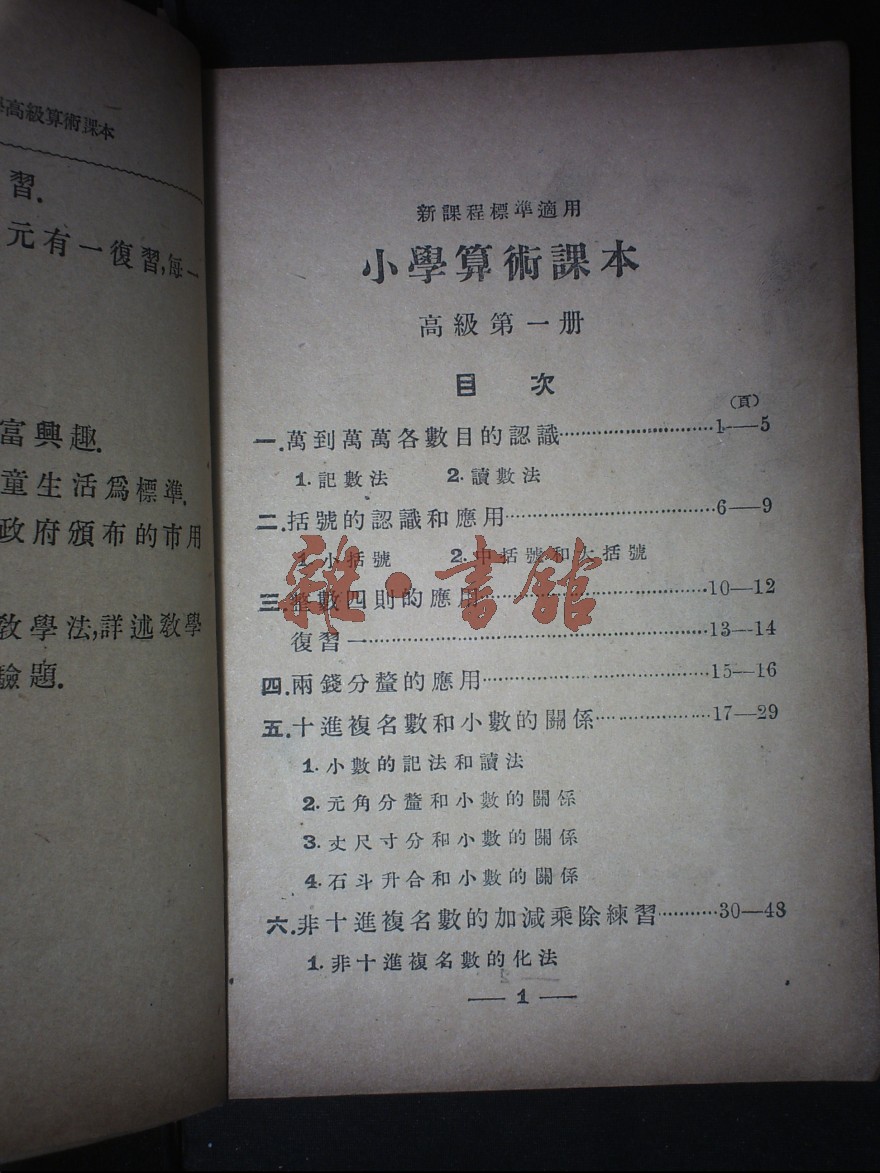 學高級算術課本
習.
元有一復習,每一
富興趣.
童生活爲標準.
政府頒布的市用
教學法,詳述教學
驗題.
新課程標準適用
小學算術課本
高級第一册
目次
(頁)
一.萬到萬萬各數目的認識…………1—5
1.記數法 2.讀數法
二.括號的認識和應用…………6—9
1.小括號 2.中括號和大括號
三.整數四則的應用…………10—12
復習一…………13—14
四.兩錢分釐的應用…………15—16
五.十進複名數和小數的關係…………17—29
1.小數的記法和讀法
2.元角分釐和小數的關係
3.丈尺寸分和小數的關係
4.石斗升合和小數的關係
六.非十進複名數的加減乘除練習…………30—48
1.非十進複名數的化法
— 1 —
雜·書館